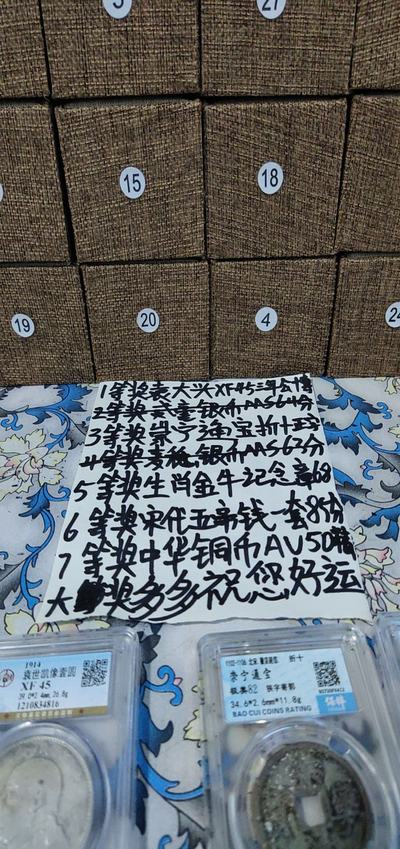 3
27
15
18
19
20
4
24
1等奖袁大头XF45三年公博
2等奖贰壹银币MS64分
3等奖崇宁通宝折十正字
4等奖麦穗银币MS63分
5等奖生肖金牛记念章68
6等奖宋代五帝钱一套85分
7等奖中华铜币AU50精
大奖多多祝您好运
1914
袁世凯像壹圆
XF 45
39.0*2.4mm,26.8g
1210834816
1102-1106 北宋 徽宗 折十
崇宁通宝
极美82
34.6*2.6mm*11.8g
BAO CUI COINS RATING